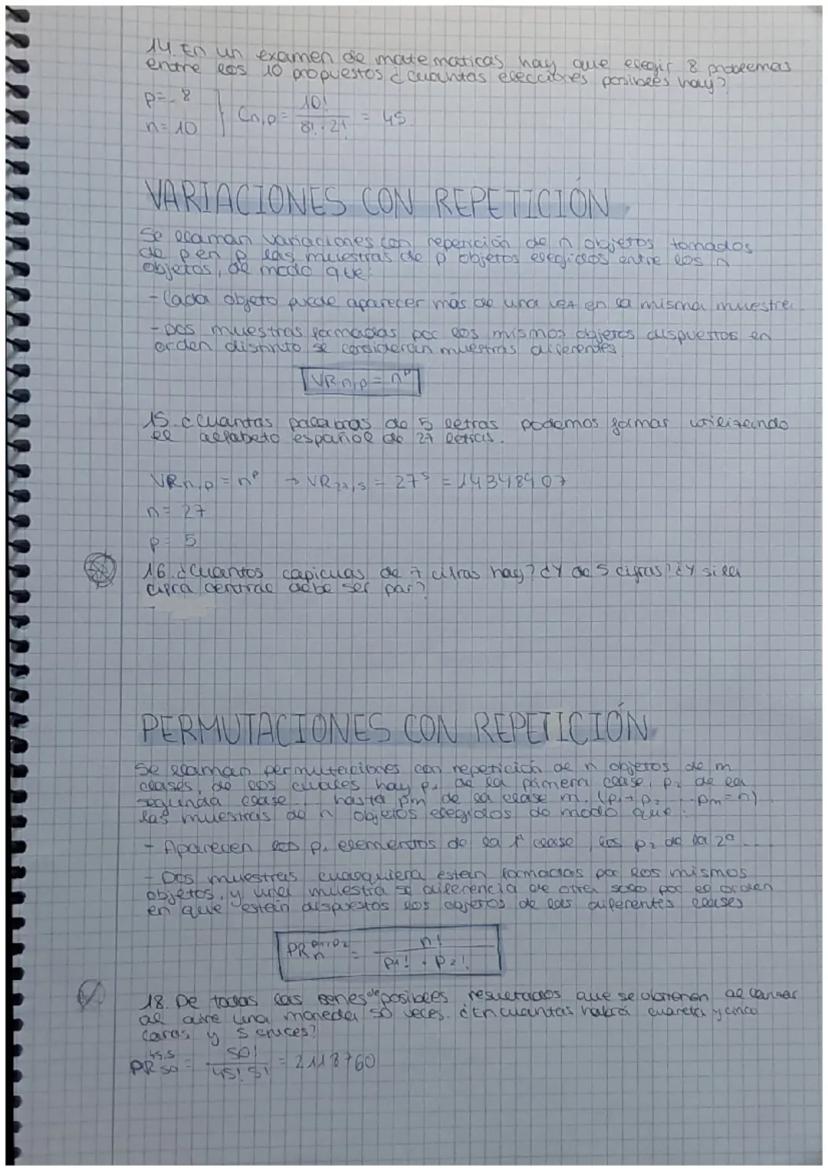 14. En un examen de matematicas hay que elegir 8 problemas
entre los 10 propuestos ¿cuantas elecciones posibles hay?
p= 8
n= 10
Cn,p = 10! / 8!·2! = 45
VARIACIONES CON REPETICIÓN
Se llaman variaciones con repetición de n objetos tomados
de p en p las muestras de p objetos elegidos entre los n
objetos, de modo que:
- Cada objeto puede aparecer más de una vez en la misma muestra
- Dos muestras formadas por los mismos objetos dispuestos en
orden distinto se consideran muestras diferentes
VRn,p = nᵖ
15. ¿cuantas palabras de 5 letras podemos formar utilizando
el alfabeto español de 27 letras.
VRn,p = nᵖ → VR27,5 = 27⁵ = 14348907
n= 27
p= 5
16. ¿cuantos capicuas de 7 cifras hay? ¿Y de 5 cifras? ¿Y si la
cifra central debe ser par?
PERMUTACIONES CON REPETICIÓN
Se llaman permutaciones con repetición de n objetos de m
clases, de los cuales hay p₁ de la primera clase, p₂ de la
segunda clase ... hasta pm de la clase m. (p₁+p₂ ... pm=n)
las muestras de n objetos elegidos de modo que:
- Aparecen los p₁ elementos de la 1ª clase, los p₂ de la 2ª...
- Dos muestras cualquiera están formadas por los mismos
objetos, y una muestra se diferencia de otra solo por el orden
en que están dispuestos los objetos de las diferentes clases
PRn = n! / p1! · p2!
18. De todas las series de posibles resultados que se obtienen al lanzar
al aire una moneda 50 veces. ¿En cuantas habrá cuarenta y cinco
caras y 5 cruces?
PR50 45,5 = 50! / 45!5! = 2118760